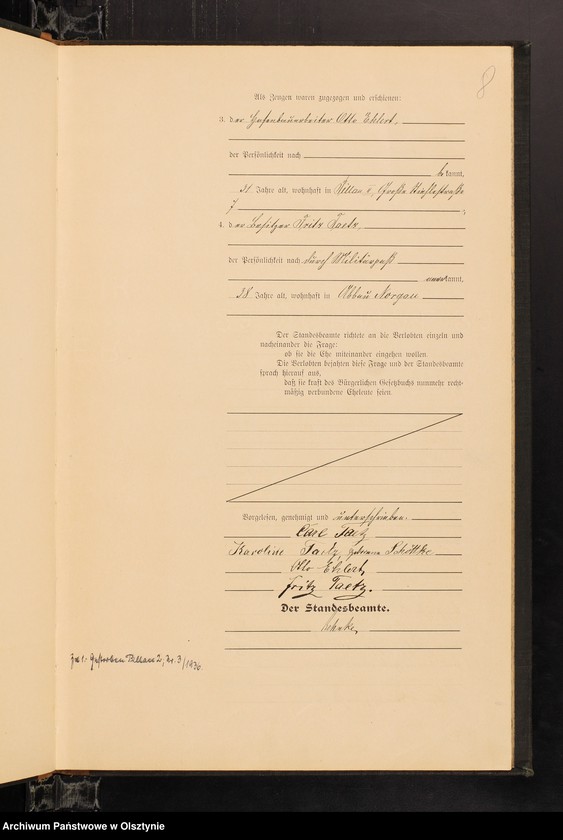 8
Als Zeugen waren zugezogen und erschienen:
3. der Hafenbauarbeiter Otto Ehlert,
der Persönlichkeit nach
bekannt,
31 Jahre alt, wohnhaft in Pillau II, Große
7;
4. der Besitzer Fritz Taetz,
der Persönlichkeit nach durch Militärpaß
anerkannt,
38 Jahre alt, wohnhaft in Abbau Norgau
Der Standesbeamte richtete an die Verlobten einzeln und
nacheinander die Frage:
ob sie die Ehe miteinander eingehen wollen.
Die Verlobten bejahten diese Frage und der Standesbeamte
sprach hierauf aus,
daß sie kraft des Bürgerlichen Gesetzbuchs nunmehr recht-
mäßig verbundene Eheleute seien.
Vorgelesen, genehmigt und unterschrieben.
Carl Taetz
Karoline Taetz, geborene
Otto Ehlert,
Fritz Taetz.
Der Standesbeamte.
Zu 1. Gestorben Pillau 2, Nr. 3/1936.
Archiwum Państwowe w Olsztynie